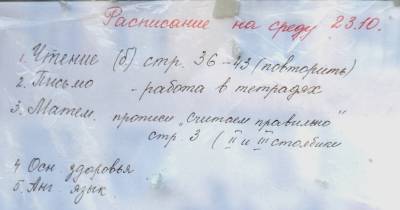 Расписание на среду 23.10.
1. Чтение (б) стр. 36-43 (повторить)
2. Письмо - работа в тетрадях
3. Матем. прописи „считаем правильно"
стр. 3 ( II и III столбики
4 Осн. здоровья
5. Анг. язык.